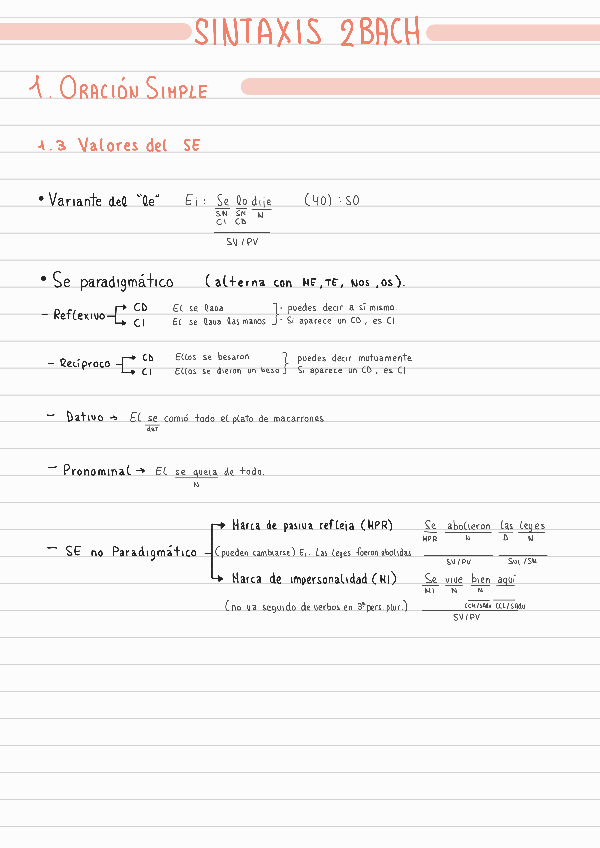 SINTAXIS 2BACH
1. ORACIÓN SIMPLE
1.3 Valores del SE
• Variante del "le" Ej: Se lo dije (YO): SO
SN SN N
CI CD
SV/PV
• Se paradigmático (alterna con ME, TE, NOS, OS).
- Reflexivo → CD El se lava · puedes decir a sí mismo.
→ CI El se lava las manos · Si aparece un CD, es CI
- Recíproco → CD Ellos se besaron puedes decir mutuamente
→ CI Ellos se dieron un beso Si aparece un CD, es CI
- Dativo → El se comió todo el plato de macarrones
dat
- Pronominal → El se queja de todo.
N
→ Marca de pasiva refleja (MPR) Se abolieron las leyes
MPR N D N
- SE no Paradigmático (pueden cambiarse) Ej. Las leyes fueron abolidas
SV/PV SUJ/SN
→ Marca de impersonalidad (MI) Se vive bien aquí
MI N N
(no va seguido de verbos en 3ª pers. plur.) CCM/SAdv CCL/SAdv
SV/PV